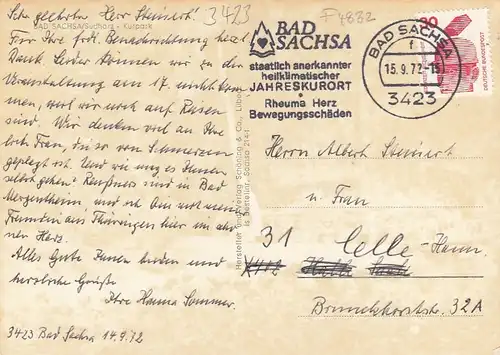 3423
F 4882
Sehr geehrter Herr Steinert!
BAD SACHSA/Südharz - Kurpark
Für Ihre frdl. Benachrichtigung herzl.
Dank. Leider können wir zu der
Veranstaltung am 17. nicht kommen,
weil wir noch auf Reisen
sind. Wir denken viel an Ihre
lb. Frau, die von Schmerzen
geplagt ist. Und wie mag es Ihnen
selbst gehen?
in Bad
Mergentheim, und ich
Freundin aus Thüringen hier im
Harz.
Alles Gute Ihnen beiden und
herzliche Grüße
Ihre Hanna Sommer.
3423 Bad Sachsa 14.9.72
Hersteller und Verlag Schöning & Co., Lübeck
BAD
SACHSA
staatlich anerkannter
heilklimatischer
JAHRESKURORT
Rheuma Herz
Bewegungsschäden
BAD SACHSA
f
15.9.72-15
3423
DEUTSCHE BUNDESPOST
Herrn Albert Steinert
u. Frau
31 Celle-Hann.
32A